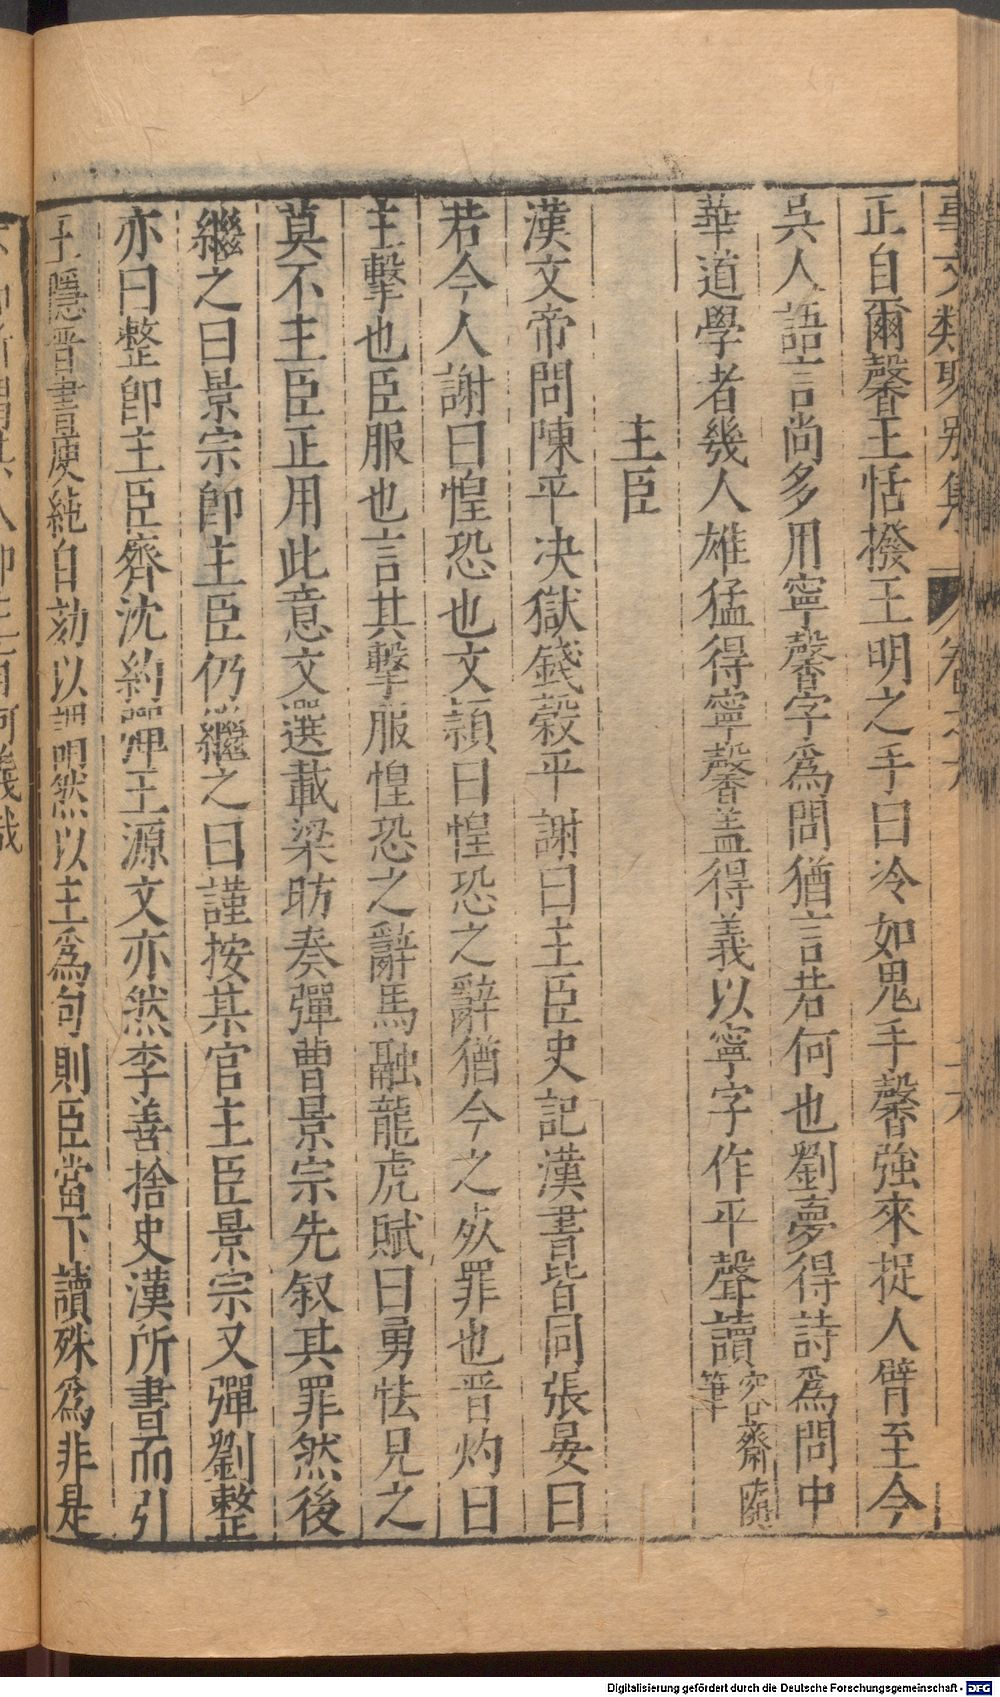 事文類聚別集 卷之六
正自爾馨王恬撥王明之手曰冷如鬼手馨強來捉人臂至今
吳人語言尚多用寧馨字爲問猶言若何也劉夢得詩爲問中
華道學者幾人雄猛得寧馨蓋得義以寧字作平聲讀容齋隨筆
主臣
漢文帝問陳平決獄錢穀平謝曰主臣史記漢書皆同張晏曰
若今人謝曰惶恐也文穎曰惶恐之辭猶今之死罪也晋灼曰
主擊也臣服也言其擊服惶恐之辭馬融龍虎賦曰勇怯見之
莫不主臣正用此意文選載梁昉奏彈曹景宗先叙其罪然後
繼之曰景宗卽主臣仍繼之曰謹按某官主臣景宗又彈劉整
亦曰整卽主臣齊沈約彈王源文亦然李善捨史漢所書而引
王隱晋書庾純自劾以謂然以主爲句則臣當下讀殊爲非是
Digitalisierung gefördert durch die Deutsche Forschungsgemeinschaft - DFG